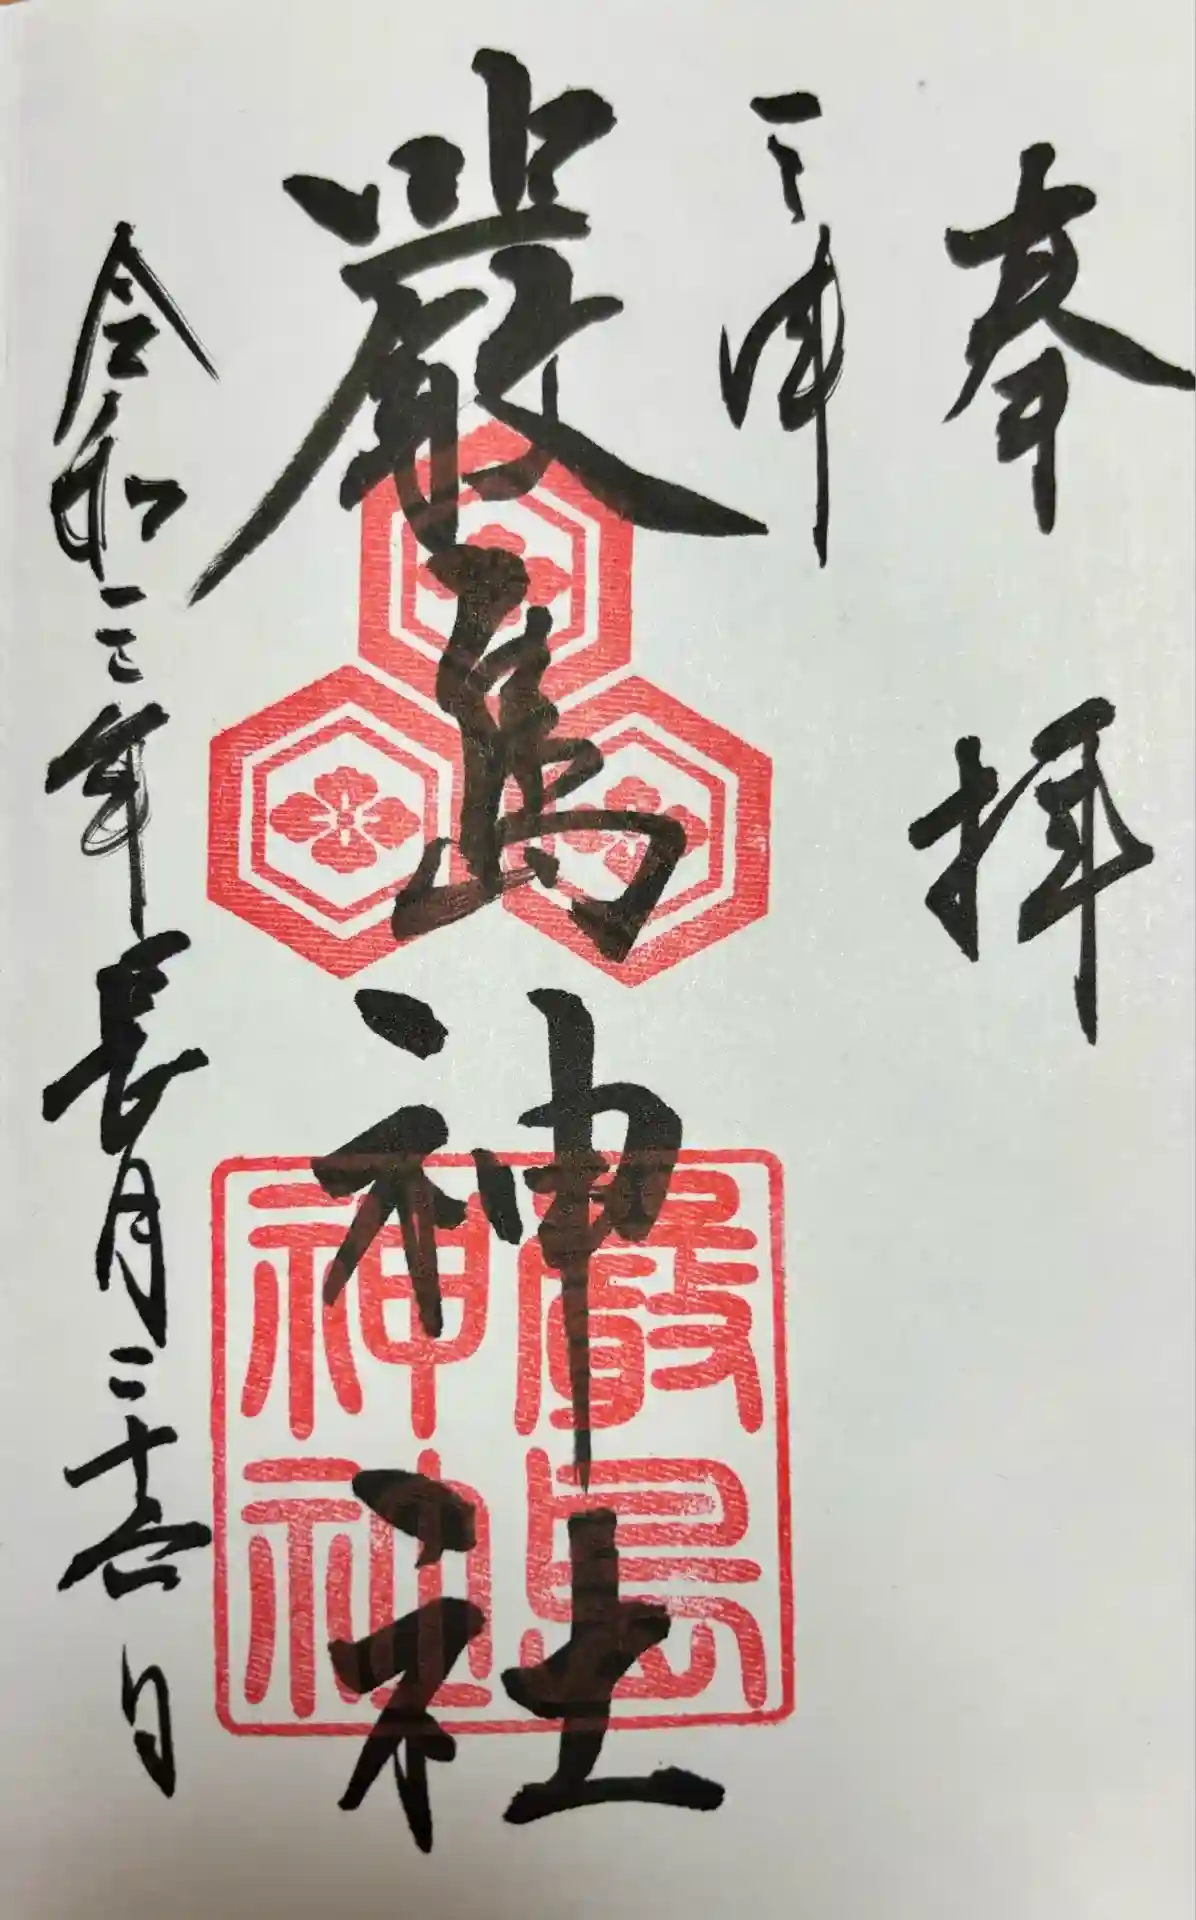 奉拝
三津
嚴島神社
嚴島
神社
令和三年長月二十日